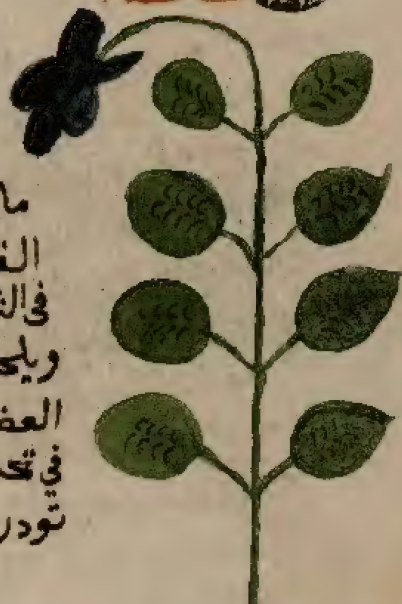 ما
الف
فى الث
ويلح
العض
فى تج
تودر